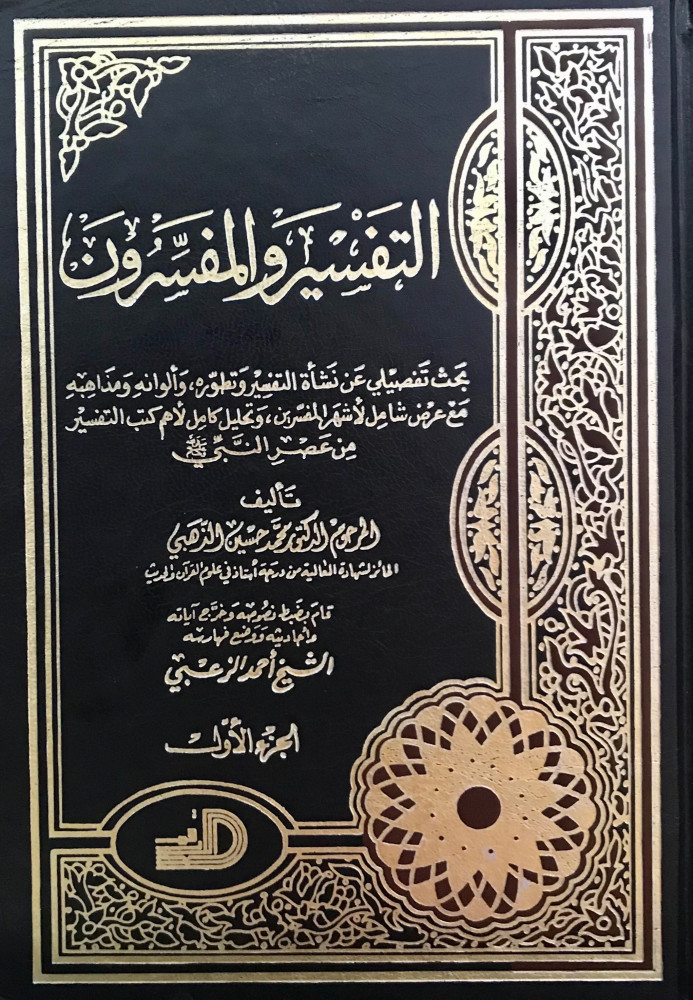 التَفْسِير وَالمفَسِّرُونَ
بحَث تَفصِيلي عَن نَشأة التفسِير وَتطوّره، وَألوانهِ وَمَذاهِبهِ
مَع عرض شامِل لأشهَر المفسّرين، وَتحليل كامِل لأهم كتب التفسير
مِن عَصْرِ النَّبيِّ ﷺ
تَأليف
المرحوم الدكتور محمّد حسين الذّهَبي
الحائز لشهادة العالمية من درجة أستاذ في علوم القرآن والحديث
قامَ بضَبط نصُوصه وَخرّج آياته
وأحاديثه وَوَضع فهارسه
الشيخ أحمد الزعبي
الجزء الأوّل